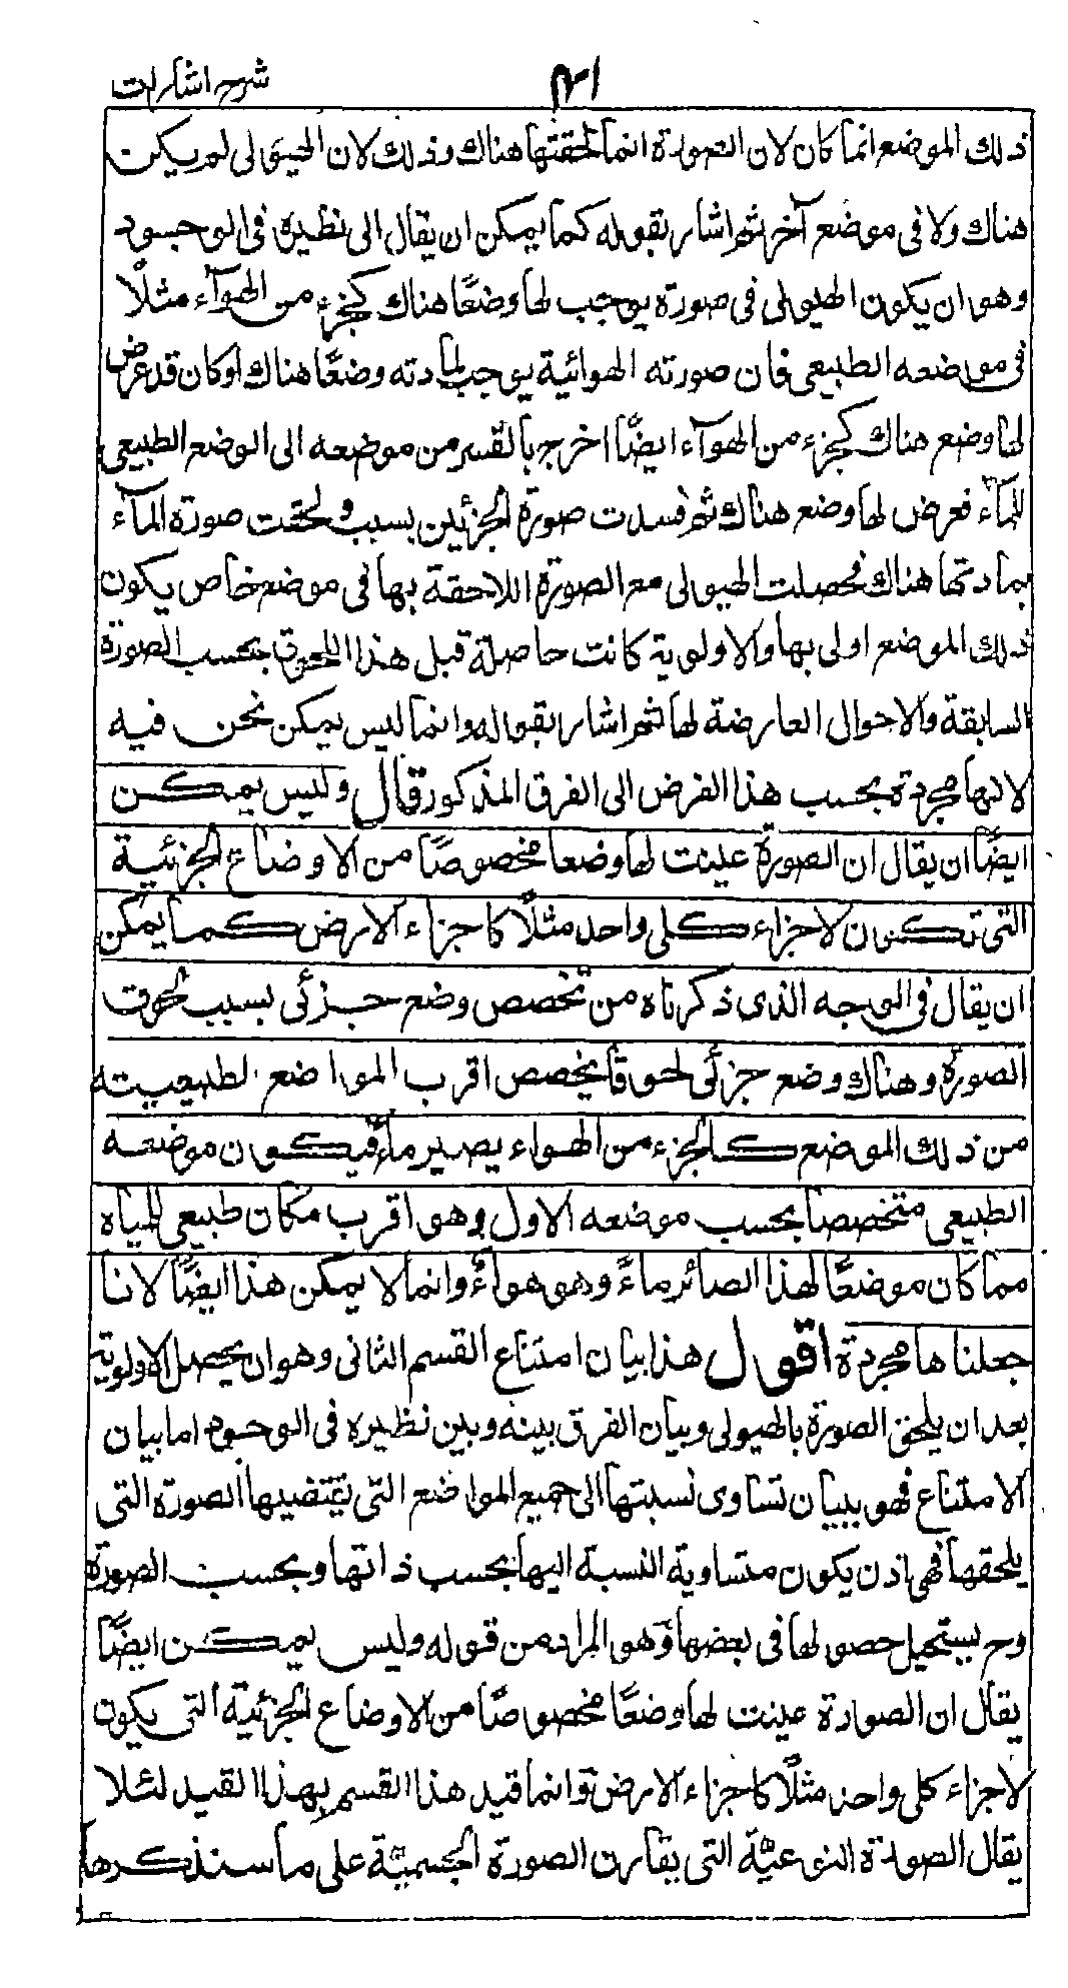 شرح اشارات
ذلك الموضع انما كان لان الصورة انما لحقتها هناك وذلك لان الهيولى لم يكن
هناك ولا فى موضع آخر ثم اشار بقوله كما يمكن ان يقال الى نظيره فى الوجود
وهو ان يكون الهيولى فى صورة يوجب لها وضعًا هناك كجزء من الهوآء مثلًا
فى موضعه الطبيعى فان صورته الهوائية يوجب لمادته وضعًا هناك او كان قد عرض
لها وضع هناك كجزء من الهوآء ايضًا اخرج بالقسر من موضعه الى الوضع الطبيعى
للمآء فعرض لها وضع هناك ثم فسدت صورة الجزئين بسبب ولحقت صورة المآء
بمادتها هناك فحصلت الهيولى مع الصورة اللاحقة بها فى موضع خاص يكون
ذلك الموضع اولى بها والاولوية كانت حاصلة قبل هذا اللحوق بحسب الصورة
السابقة والاحوال العارضة لها ثم اشار بقوله وانما ليس يمكن نحن فيه
لانها مجردة بحسب هذا الفرض الى الفرق المذكور قال وليس يمكن
ايضًا ان يقال ان الصورة عينت لها وضعا مخصوصًا من الاوضاع الجزئية
التى تكون لاجزاء كلى واحد مثلًا كاجزاء الارض كما يمكن
ان يقال فى الوجه الذى ذكرناه من تخصص وضع جزئى بسبب لحوق
الصورة وهناك وضع جزئى لحوقا يخصص اقرب المواضع لطبيعيته
من ذلك الموضع كالجزء من الهواء يصير ماء فيكون موضعه
الطبيعى متخصصا بحسب موضعه الاول وهو اقرب مكان طبيعى للمياه
مما كان موضعًا لهذا الصائر ماءً وهو هواءٌ وانما لا يمكن هذا ايضًا لانا
جعلناها مجردة اقول هذا بيان امتناع القسم الثانى وهو ان يحصل الاولوية
بعد ان يلحق الصورة بالهيولى وبيان الفرق بينه وبين نظيره فى الوجود اما بيان
الامتناع فهو ببيان تساوى نسبتها الى جميع المواضع التى تقتضيها الصورة التى
يلحقها فهى اذن يكون متساوية النسبة اليها بحسب ذاتها وبحسب الصورة
وح يستحيل حصولها فى بعضها وهو المراد من قوله وليس يمكن ايضًا
يقال ان الصورة عينت لها وضعًا مخصوصًا من الاوضاع الجزئية التى يكون
لاجزاء كلى واحد مثلًا كاجزاء الارض وانما قيد هذا القسم بهذا القيد لئلا
يقال الصورة النوعيّة التى يقارن الصورة الجسميّة على ما سنذكرها